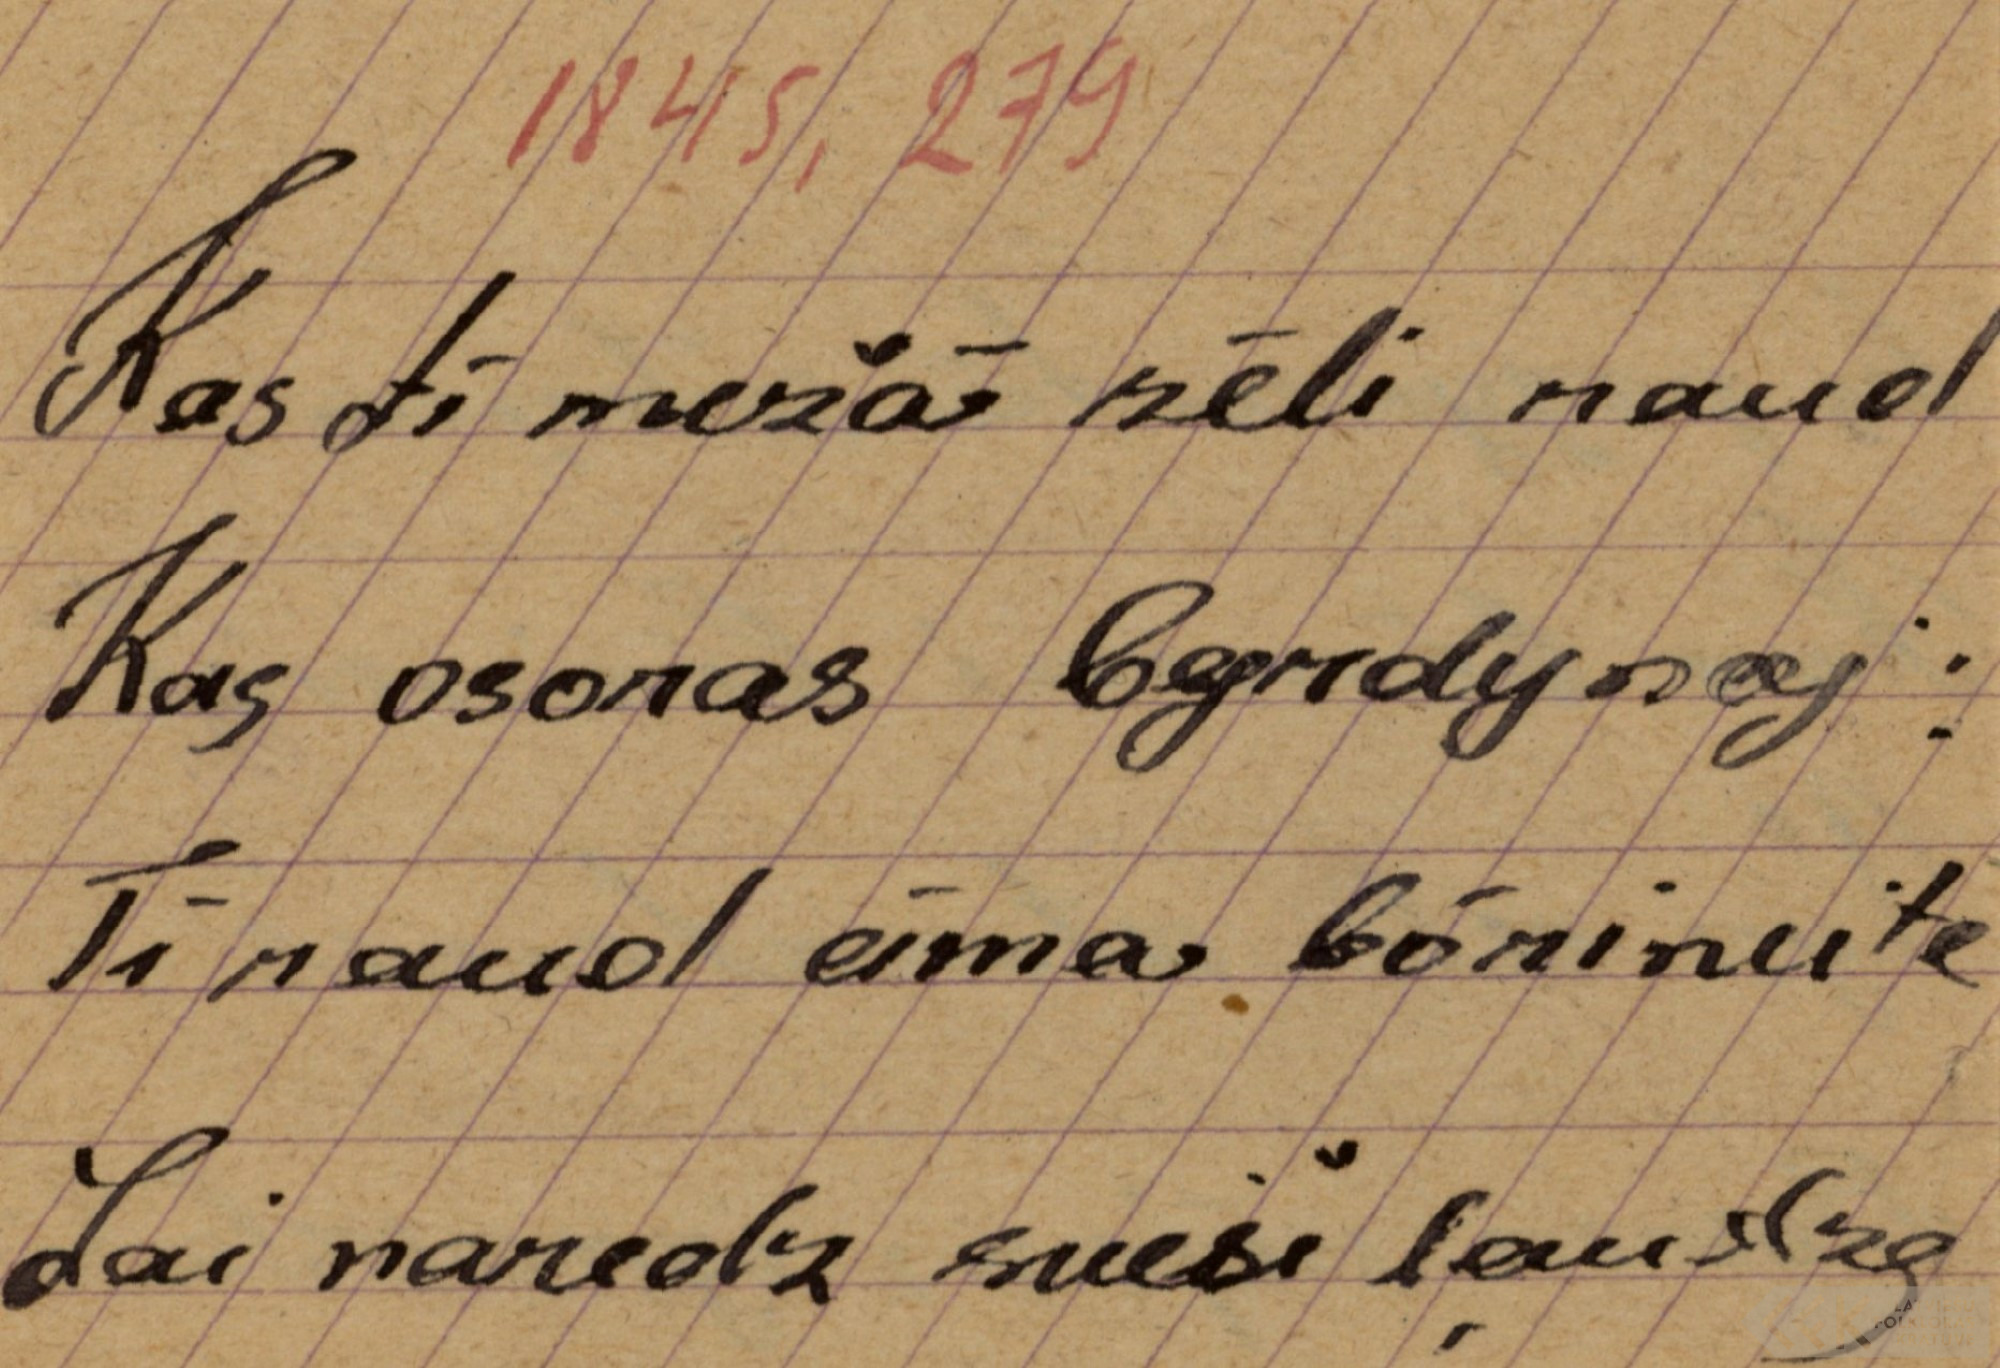 1845, 279
Kas tī mežā žēli raud
Kas osoras byrdynoj:
Tī raud eima bōrineite
Lai naredz sveši ļaudze